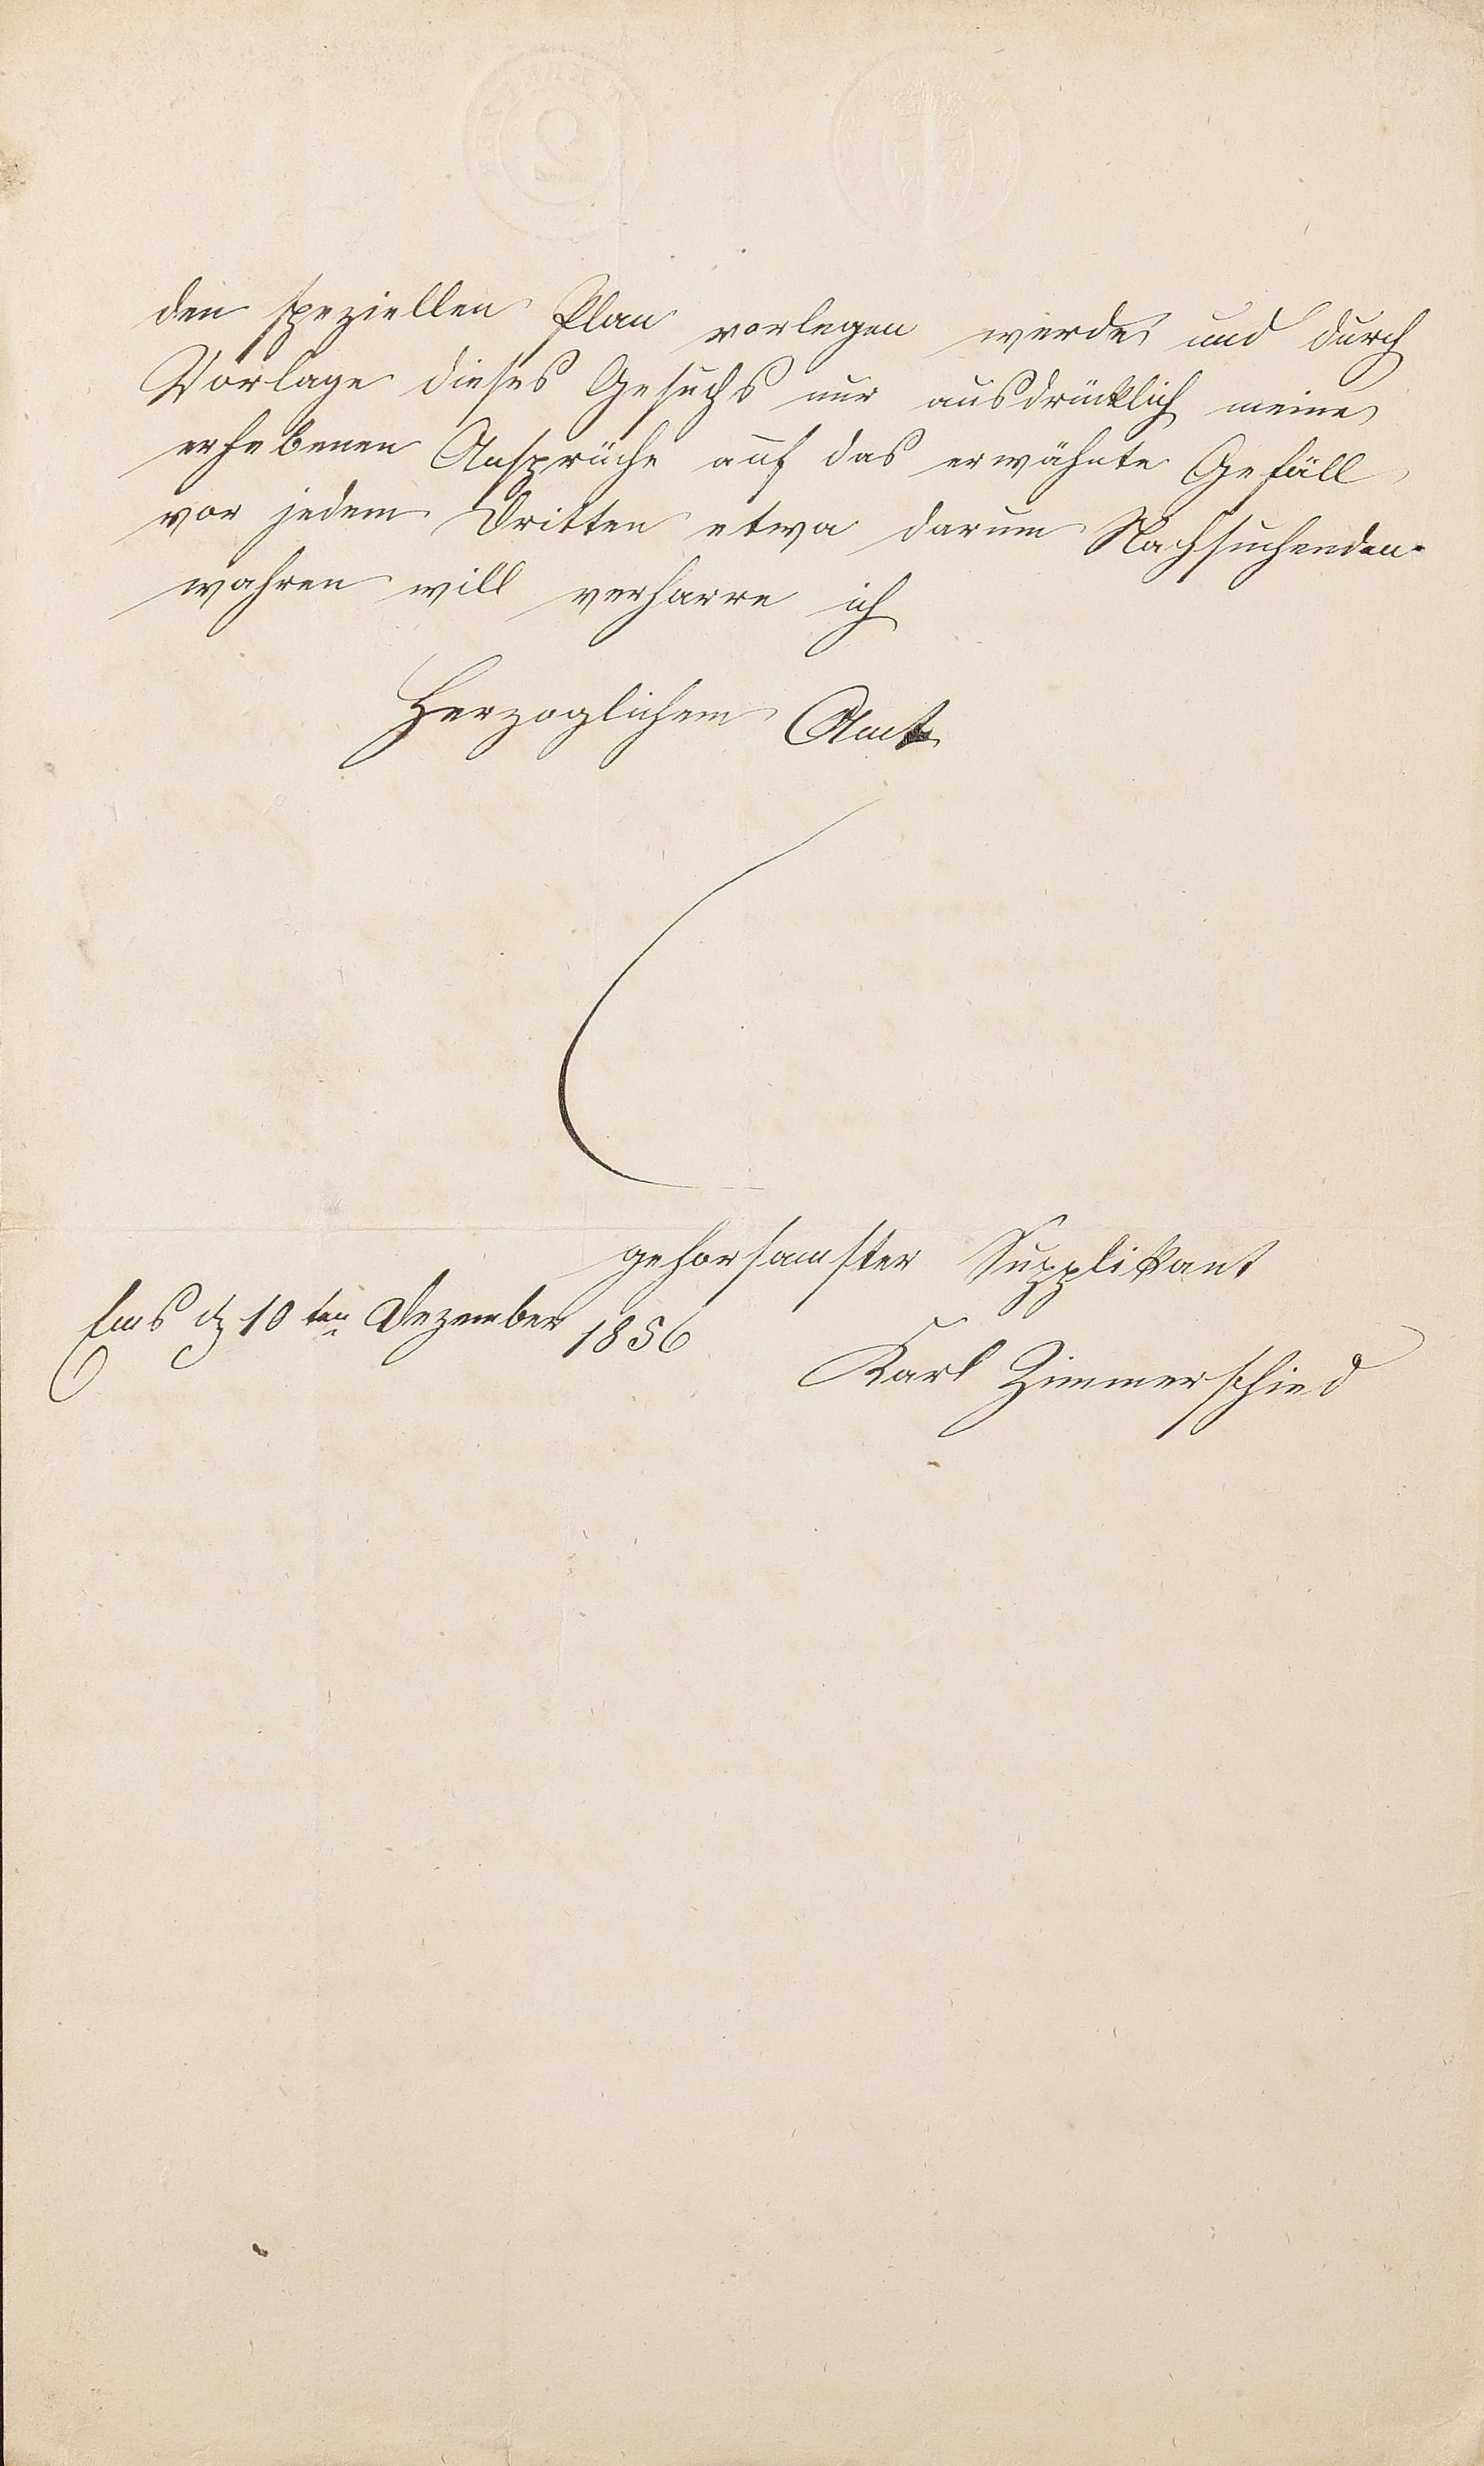 den speziellen Plan vorlegen werde und durch
Vorlage dieses Gesuchs nur ausdrücklich meine
erhebenen Ansprüche auf das erwähnte Gefäll
vor jedem Dritten etwa darum Nachsuchenden
wahren will verharre ich
Herzoglichem Amt
gehorsamster Supplikant
Ems 10ten Dezember 1856
Karl Zimmerschied